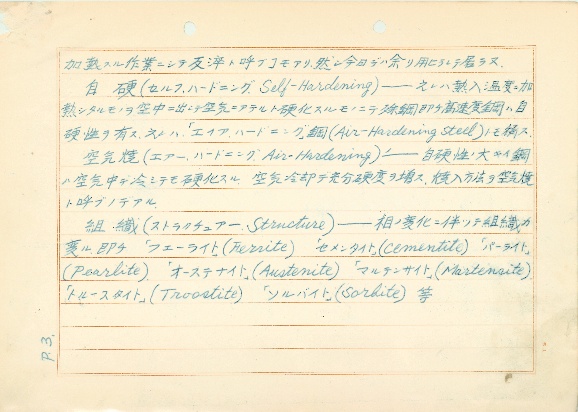 加熱スル作業ニシテ反淬ト呼ブコモアリ、然シ今日デハ余リ用ヒラレテ居ラヌ.
自硬(セルフ.ハードニング Self-Hardening)——之レハ熱入温度ニ加
熱シタルモノヲ空中ニ出シテ空気ニアテルト硬化スルモノニテ 鋼即チ高速度鋼ハ自
硬性ヲ有ス、之レハ、「エイア.ハードニング」鋼(Air-Hardening Steel)トモ稱ス.
空気焼(エアー.ハードニング Air-Hardening)——自硬性ノ大ナル鋼
ハ空気中デ冷シテモ硬化スル 空気冷却デ充分硬度ヲ増ス、焼入方法ヲ空気焼
ト呼ブノデアル.
組織(ストラクチュアー.Structure)——相ノ変化ニ伴ツテ組織ガ
変ル.即チ 「フェーライト」(Ferrite) 「セメンタイト」(Cementite) 「パーライト」
(Pearlite) 「オーステナイト」(Austenite) 「マルテンサイト」(Martensite)
「トルースタイト」(Troostite) 「ソルバイト」(Sorbite) 等
P.3.